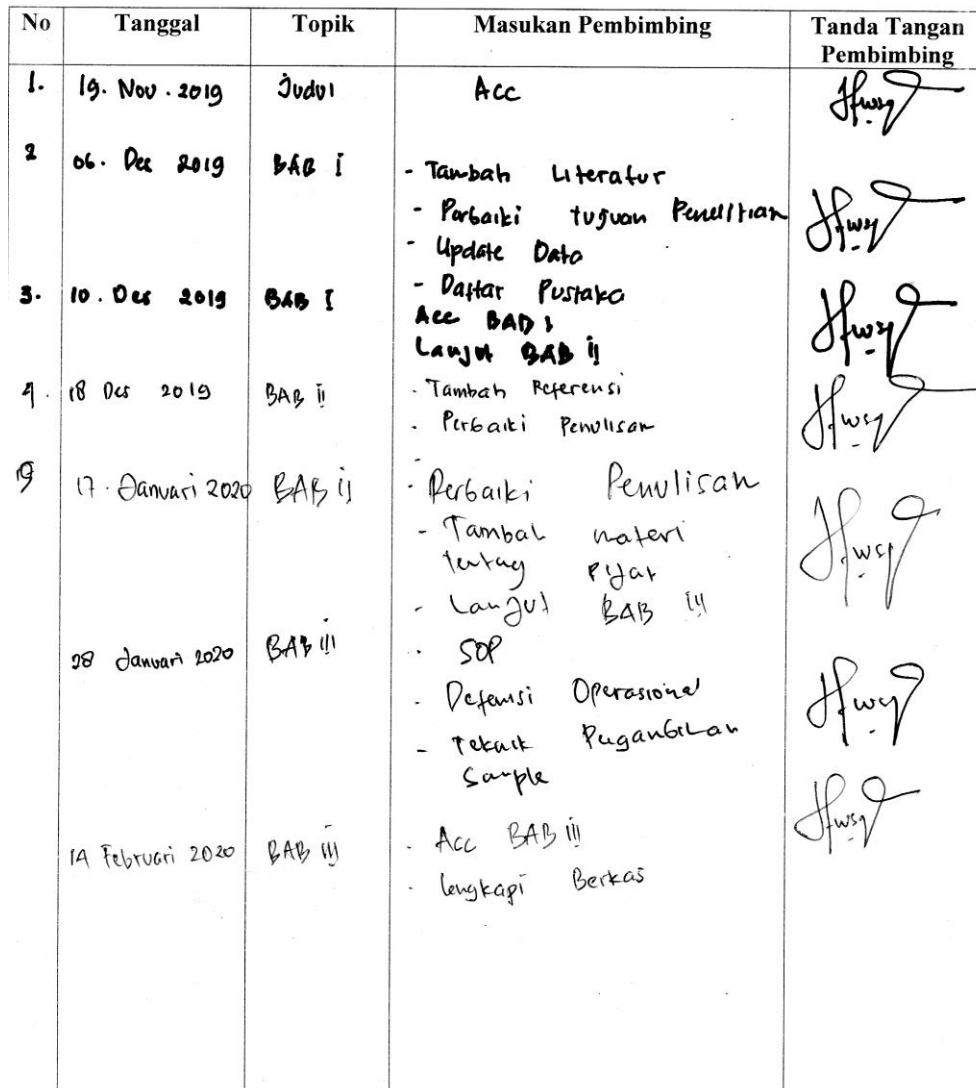 No Tanggal Topik Masukan Pembimbing Tanda Tangan Pembimbing
1. 19. Nov. 2019 Judul Acc
2 06. Des 2019 BAB I - Tambah Literatur
- Perbaiki tujuan Penelitian
- Update Data
- Daftar Pustaka
3. 10. Des 2019 BAB I Acc BAB I
Lanjut BAB II
4. 18 Des 2019 BAB II - Tambah Referensi
- Perbaiki Penulisan
17. Januari 2020 BAB II - Perbaiki Penulisan
- Tambah materi
tentang Pijat
- Lanjut BAB III
28 Januari 2020 BAB III - SOP
- Defenisi Operasional
- Teknik Pengambilan
Sample
14 Februari 2020 BAB III - Acc BAB III
- lengkapi Berkas